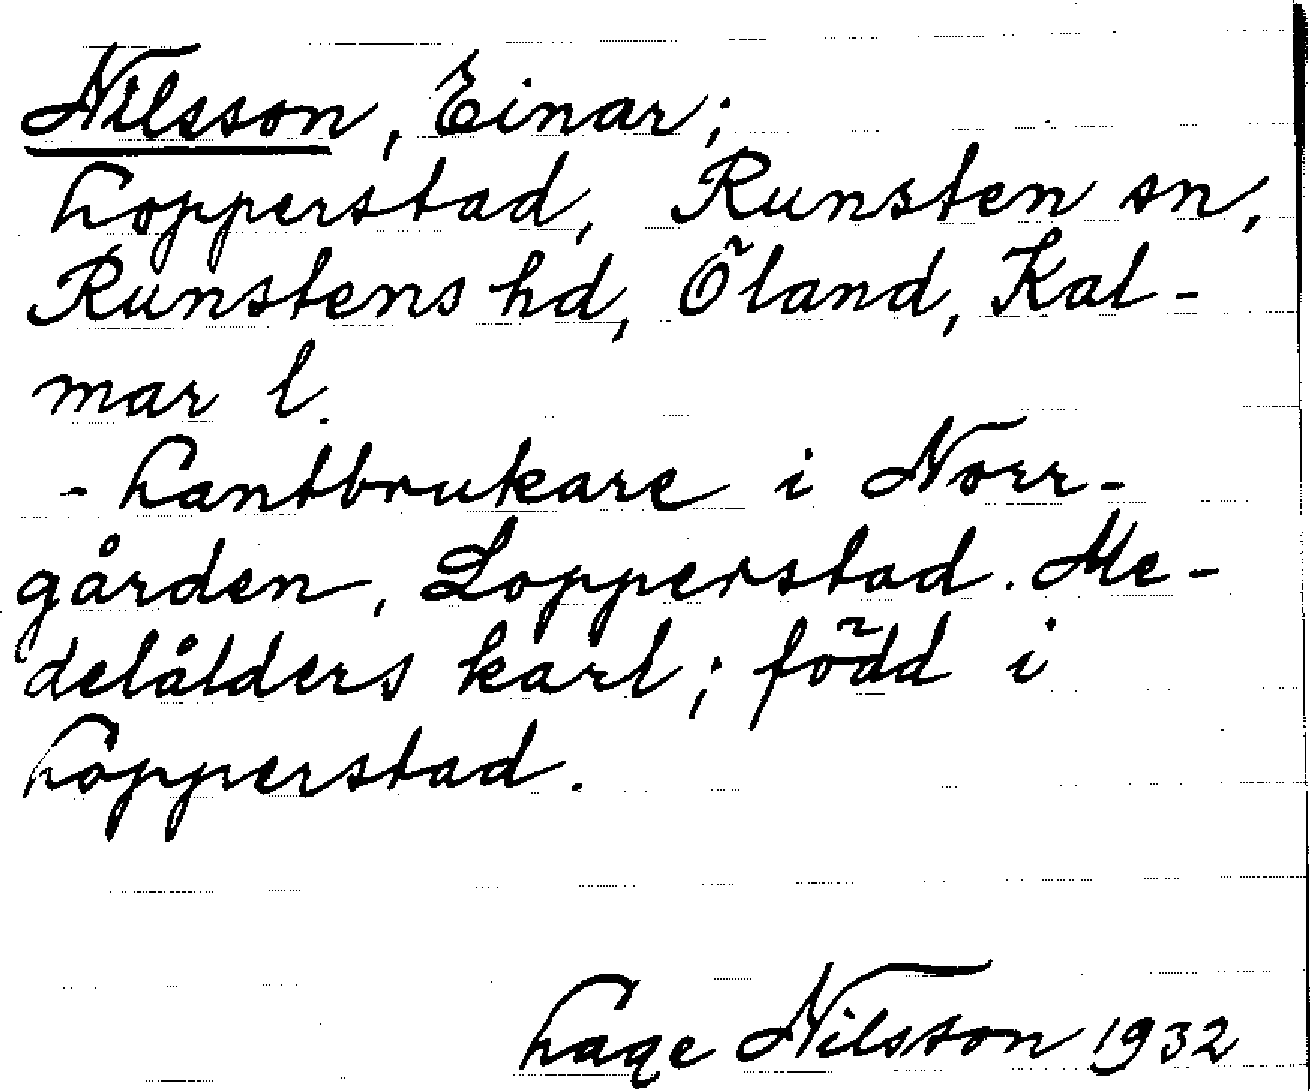 Nilsson, Einar;
Lopperstad, Runsten sn,
Runstens hd, Öland, Kal-
mar l.
- Lantbrukare i Norr-
gården, Lopperstad. Me-
delålders karl; född i
Lopperstad.
Lage Nilsson 1932